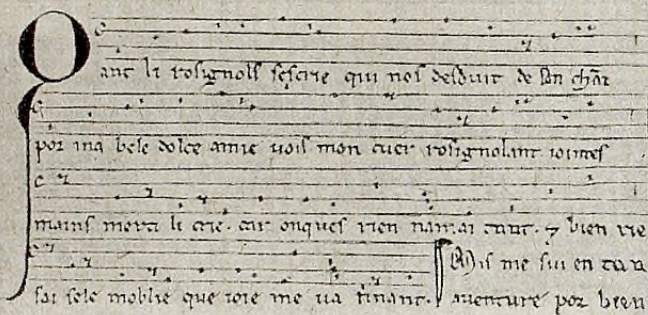 Qant li rosignols sescrie qui nos desduit de son chāt
por ma bele dolce amie vois mon cuer rosignolant iointes
mains merci li crie. car onques rien namai tant. ⁊ bien vie
sai sele moblie que ioie me va finant.
Mis me sui en tan
aventure por bien